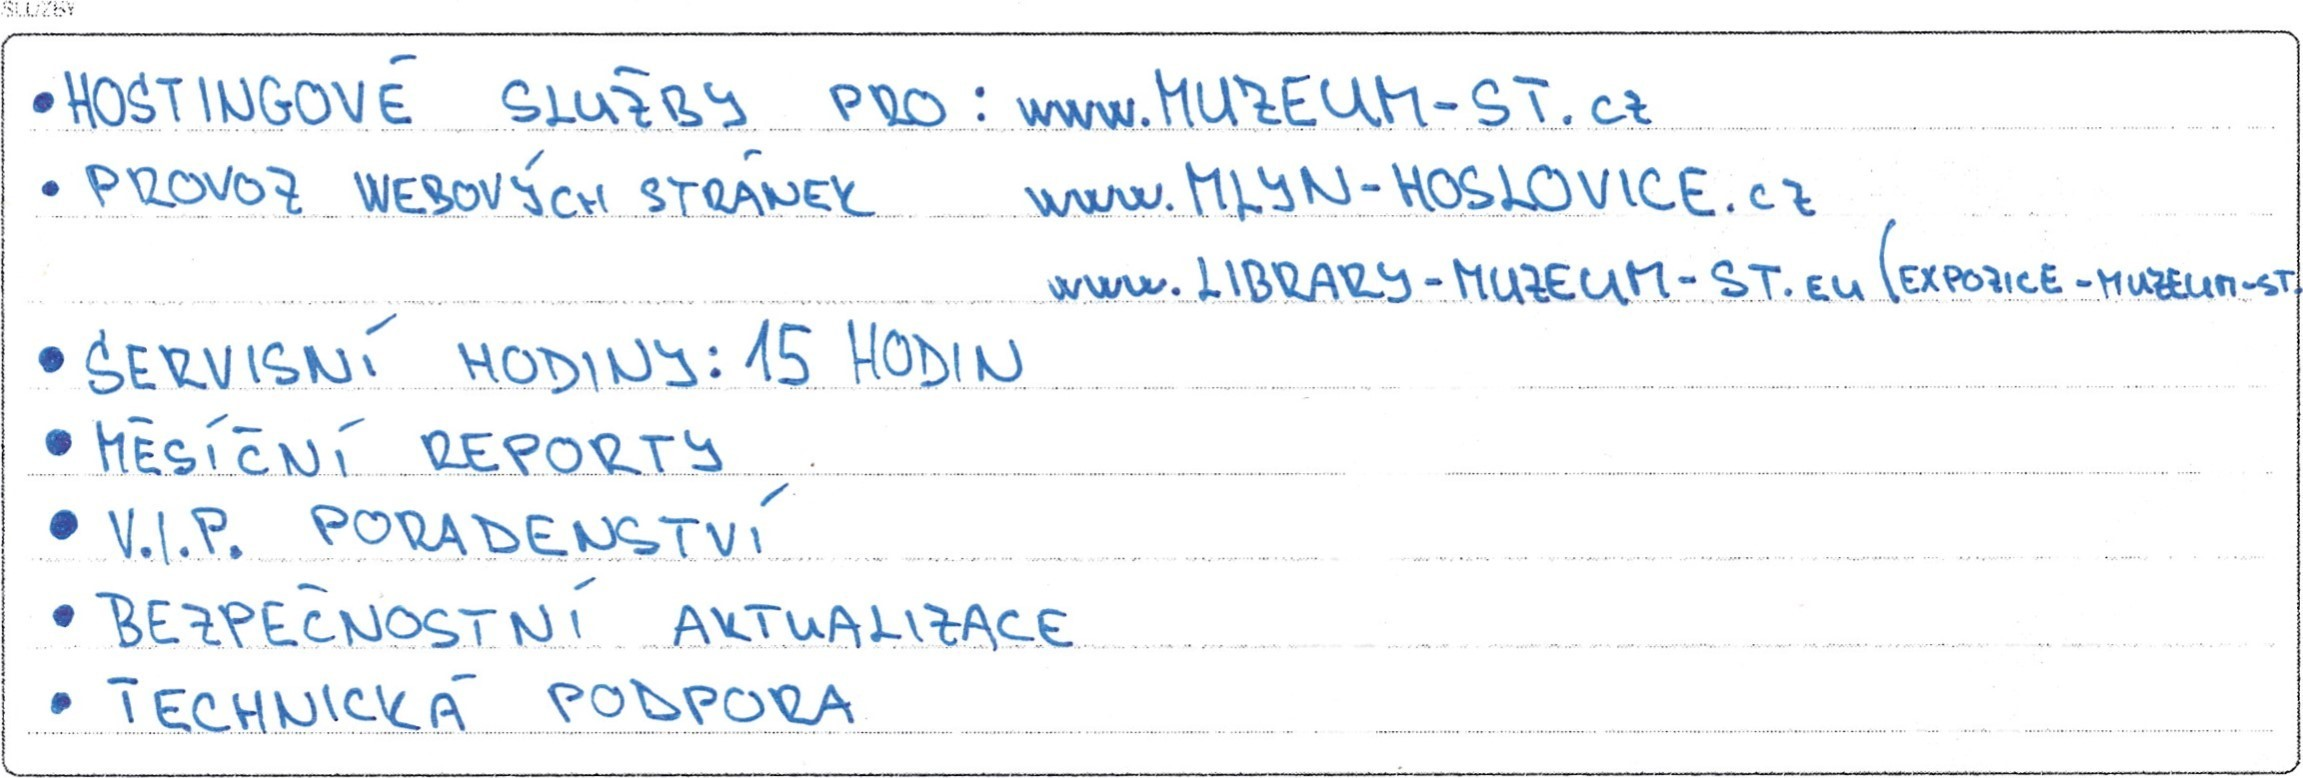 • HOSTINGOVÉ SLUŽBY PRO: www.MUZEUM-ST.cz
• PROVOZ WEBOVÝCH STRÁNEK www.MLYN-HOSLOVICE.cz
www.LIBRARY-MUZEUM-ST.EU (EXPOZICE-MUZEUM-ST.
• SERVISNÍ HODINY: 15 HODIN
• MĚSÍČNÍ REPORTY
• V.I.P. PORADENSTVÍ
• BEZPEČNOSTNÍ AKTUALIZACE
• TECHNICKÁ PODPORA